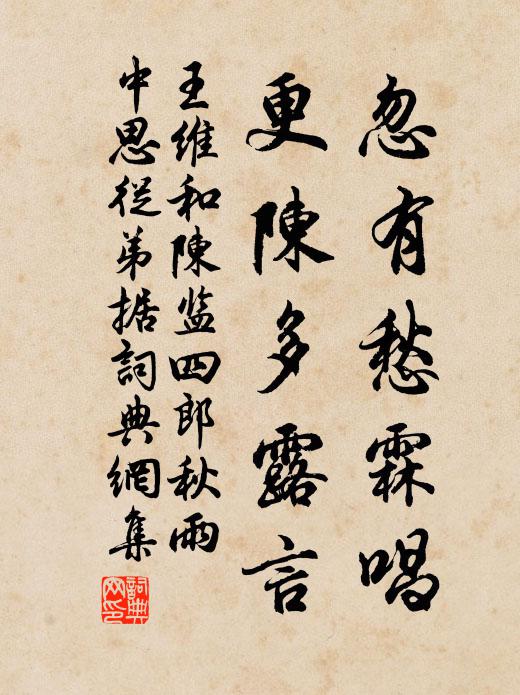 忽有愁霖唱
更陳多露言
王維和陳监四郎秋雨
中思從弟据詞典網集
詞典
网印